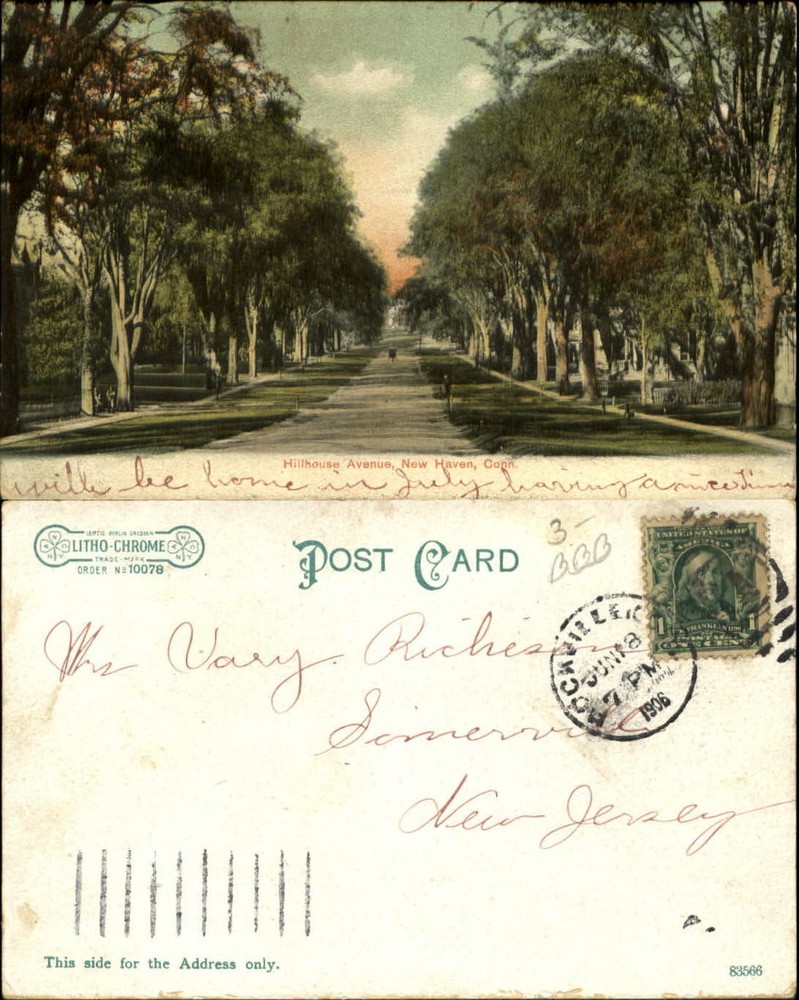 Hillhouse Avenue, New Haven, Conn.
will be home in July having a nice time
LEIPZIG·BERLIN·DRESDEN
LITHO-CHROME
TRADE-MARK
ORDER No 10078
A C N Y
A C N Y
POST CARD
3-
BBB
UNITED STATES OF
1 FRANKLIN 1
ONE CENT
ROCKVILLE
JUN 18
7 PM
1906
Mr Vary. Richeson
Somerville
New Jersey
This side for the Address only.
83566